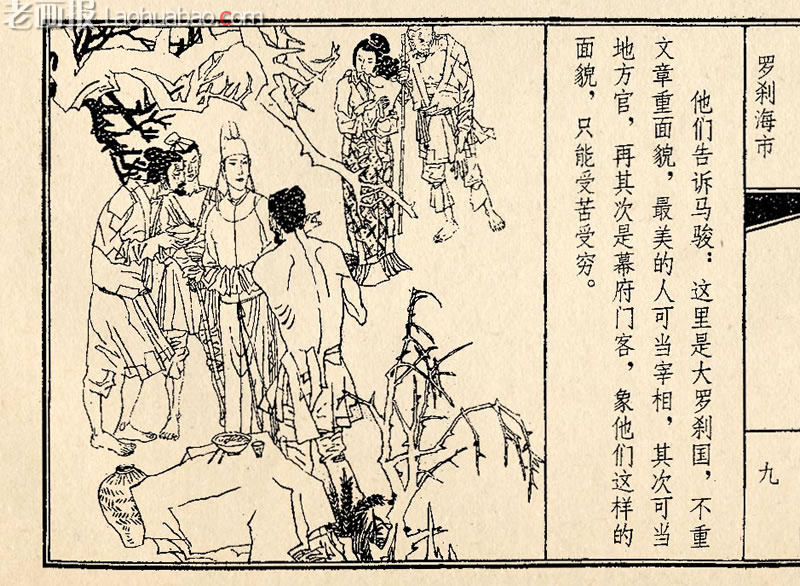 老画报
Laohuabao.com
罗刹海市
他们告诉马骏：这里是大罗刹国，不重
文章重面貌，最美的人可当宰相，其次可当
地方官，再其次是幕府门客，象他们这样的
面貌，只能受苦受穷。
九